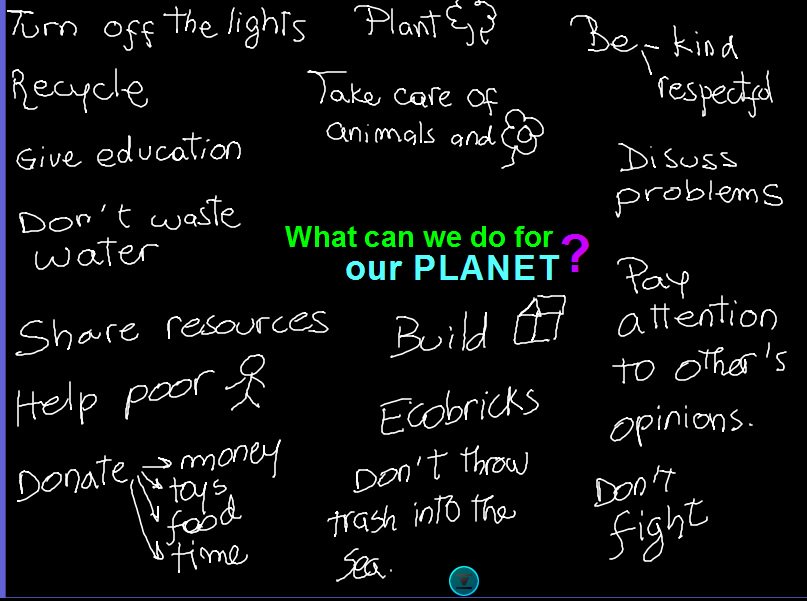 Turn off the lights
Recycle
Give education
Don't waste
water
Share resources
Help poor
Donate → money
toys
food
time
Plant
Take care of
animals and
What can we do for
our PLANET ?
Build
Ecobricks
Don't throw
trash into the
sea.
Be - kind
respectful
Disuss
problems
Pay
attention
to other's
opinions.
Don't
fight